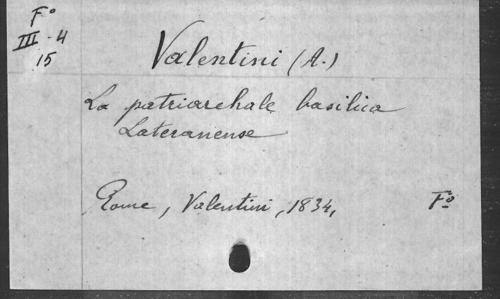 Fº
III - 4
15
Valentini (A.)
La patriarchale basilica
Lateranense
Rome, Valentini, 1834, Fº